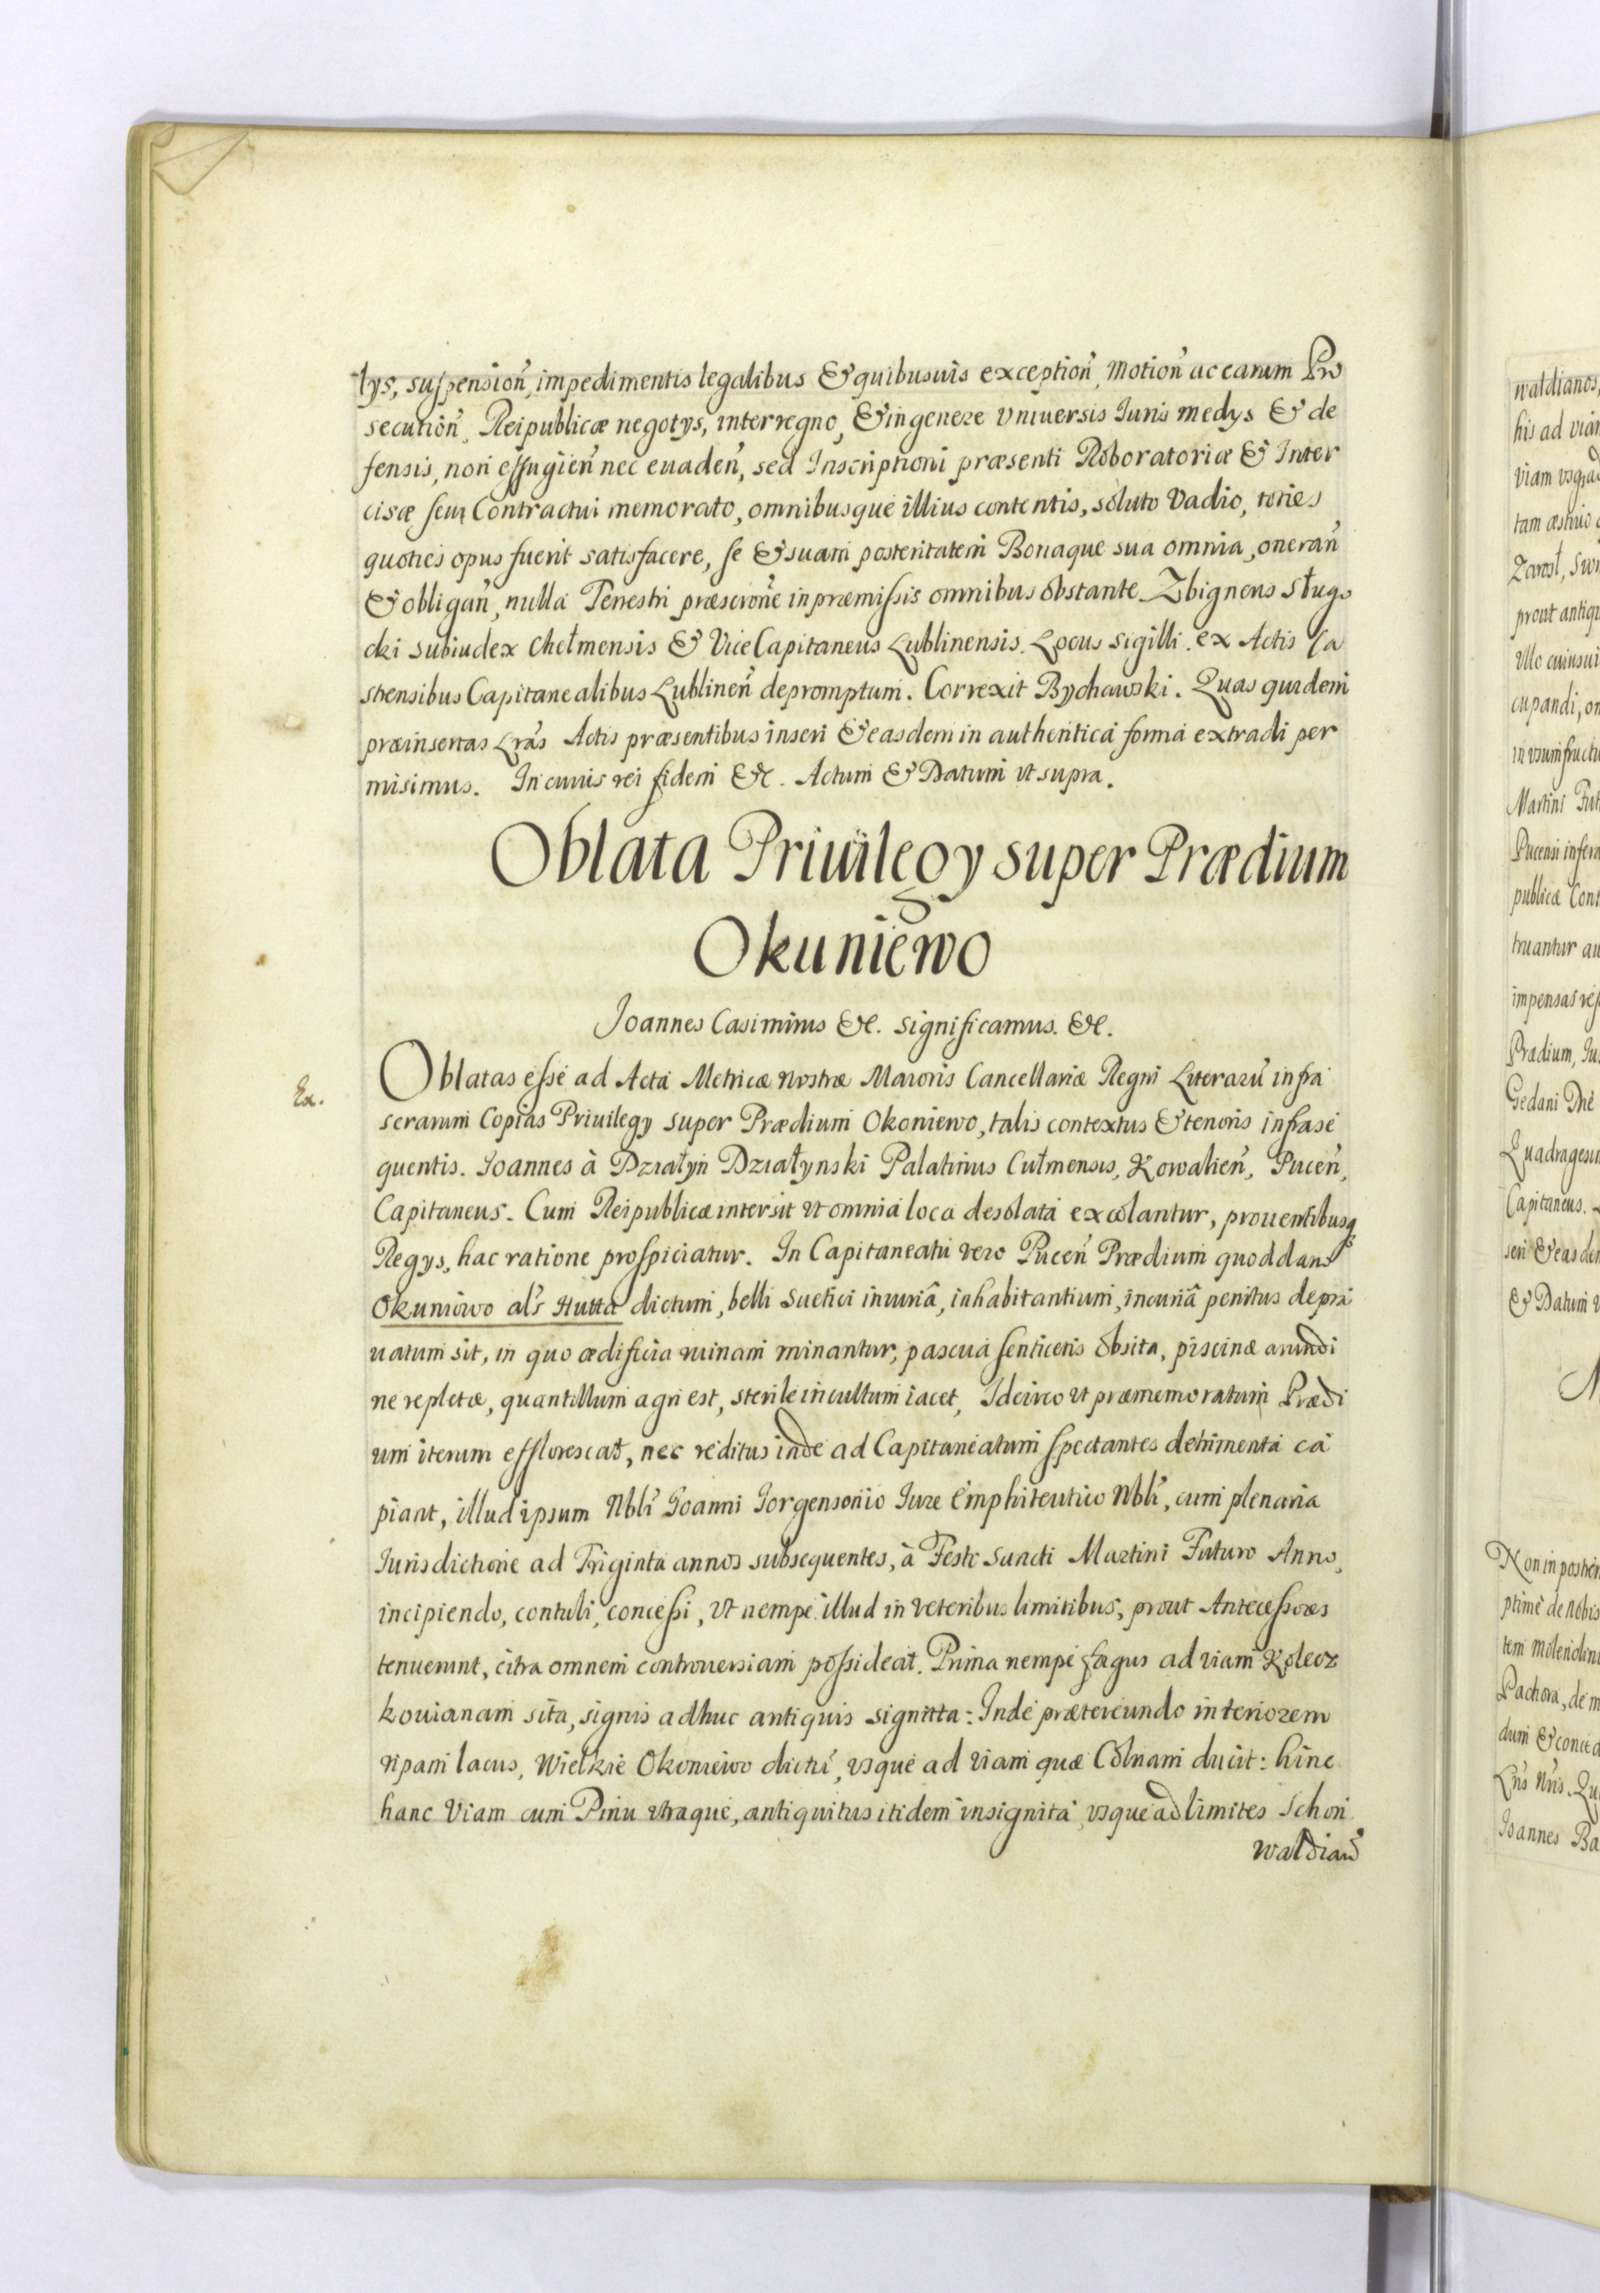 tys, suspension̄, impedimentis legalibus & quibusuis exception̄, motion̄ ac earum Pro
secution̄, Reipublicæ negotys, interregno, & in genere vniuersis Iuris medys & de
fensis, non effugien̄ nec euaden̄, sed Inscriptioni præsenti Roboratoriæ & Inter
cisæ seu Contractui memorato, omnibusque illius contentis, soluto Vadio, toties
quoties opus fuerit satisfacere, se & suam posteritatem Bonaque sua omnia, oneran̄
& obligan̄, nulla Terrestri præscrōne in præmissis omnibus obstante. Zbigneus Sługo
cki subiudex Chełmensis & ViceCapitaneus Lublinensis. Locus sigilli. ex Actis Ca
strensibus Capitanealibus Lublinen̄ depromptum. Correxit Bychawski. Quas quidem
præinsertas Lrās Actis præsentibus inseri & easdem in authentica forma extradi per
misimus. In cuius rei fidem &c. Actum & Datum vt supra.
Oblata Priuilegy super Prædium
Okuniewo
Joannes Casimirus &c. significamus. &c.
Ex.
Oblatas esse ad Acta Metricæ Nostræ Maioris Cancellariæ Regni Literarū infra
scrarum Copias Priuilegy super Prædium Okoniewo, talis contextus & tenoris infrase
quentis. Joannes à Działyn Działynski Palatinus Culmensis, Kowalien̄, Pucen̄,
Capitaneus. Cum Reipublicæ intersit vt omnia loca desolata excolantur, prouentibusq
Regys, hac ratione prospiciatur. In Capitaneatu vero Pucen̄ Prædium quoddam
Okuniewo als Hutta dictum, belli Suetici iniuriâ, inhabitantium, incuriâ penitus depra
uatum sit, in quo ædificia ruinam minantur, pascua senticetis obsita, piscinæ arundi
ne repletæ, quantillum agri est, sterile incultum iacet, Idcirco vt præmemoratum Prædi
um iterum efflorescat, nec reditus inde ad Capitaneatum spectantes detrimenta ca
piant, illud ipsum Nbli Joanni Jorgensonio Iure Emphiteutico Nbli, cum plenaria
Iurisdictione ad Triginta annos subsequentes, à Festo Sancti Martini Futuro Anno,
incipiendo, contuli, concessi, vt nempe illud in veteribus limitibus, prout Antecessores
tenuerunt, citra omnem controuersiam possideat. Prima nempe fagus ad viam Kolecz
kouianam sita, signis adhuc antiquis signitta: Inde prætereundo interiorem
ripam lacus, Wielkie Okoniewo dictū, vsque ad viam quæ Colnam ducit: hinc
hanc Viam cum Pinu vtraque, antiquitus itidem insignita vsque ad limites Schon
waldian̄